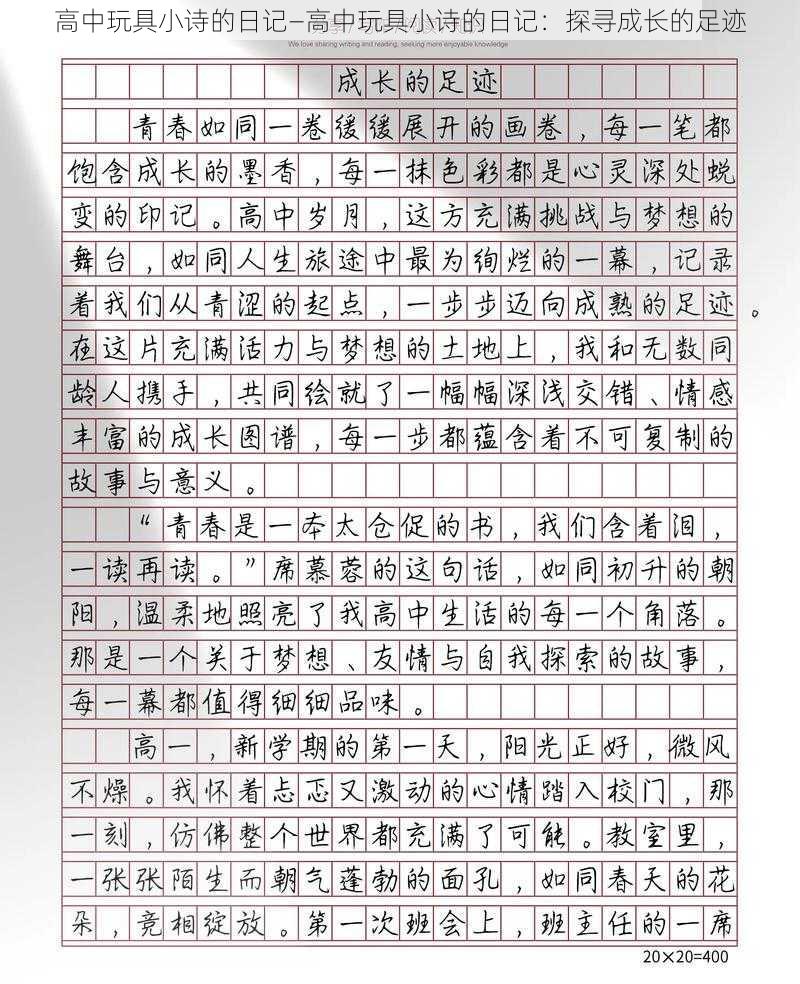 高中玩具小诗的日记—高中玩具小诗的日记：探寻成长的足迹
We love sharing writing and reading, seeking more enjoyable knowledge
成长的足迹
青春如同一卷缓缓展开的画卷，每一笔都
饱含成长的墨香，每一抹色彩都是心灵深处蜕
变的印记。高中岁月，这方充满挑战与梦想的
舞台，如同人生旅途中最为绚烂的一幕，记录
着我们从青涩的起点，一步步迈向成熟的足迹。
在这片充满活力与梦想的土地上，我和无数同
龄人携手，共同绘就了一幅幅深浅交错、情感
丰富的成长图谱，每一步都蕴含着不可复制的
故事与意义。
“青春是一本太仓促的书，我们含着泪，
一读再读。”席慕蓉的这句话，如同初升的朝
阳，温柔地照亮了我高中生活的每一个角落。
那是一个关于梦想、友情与自我探索的故事，
每一幕都值得细细品味。
高一，新学期的第一天，阳光正好，微风
不燥。我怀着忐忑又激动的心情踏入校门，那
一刻，仿佛整个世界都充满了可能。教室里，
一张张陌生而朝气蓬勃的面孔，如同春天的花
朵，竞相绽放。第一次班会上，班主任的一席
20×20=400